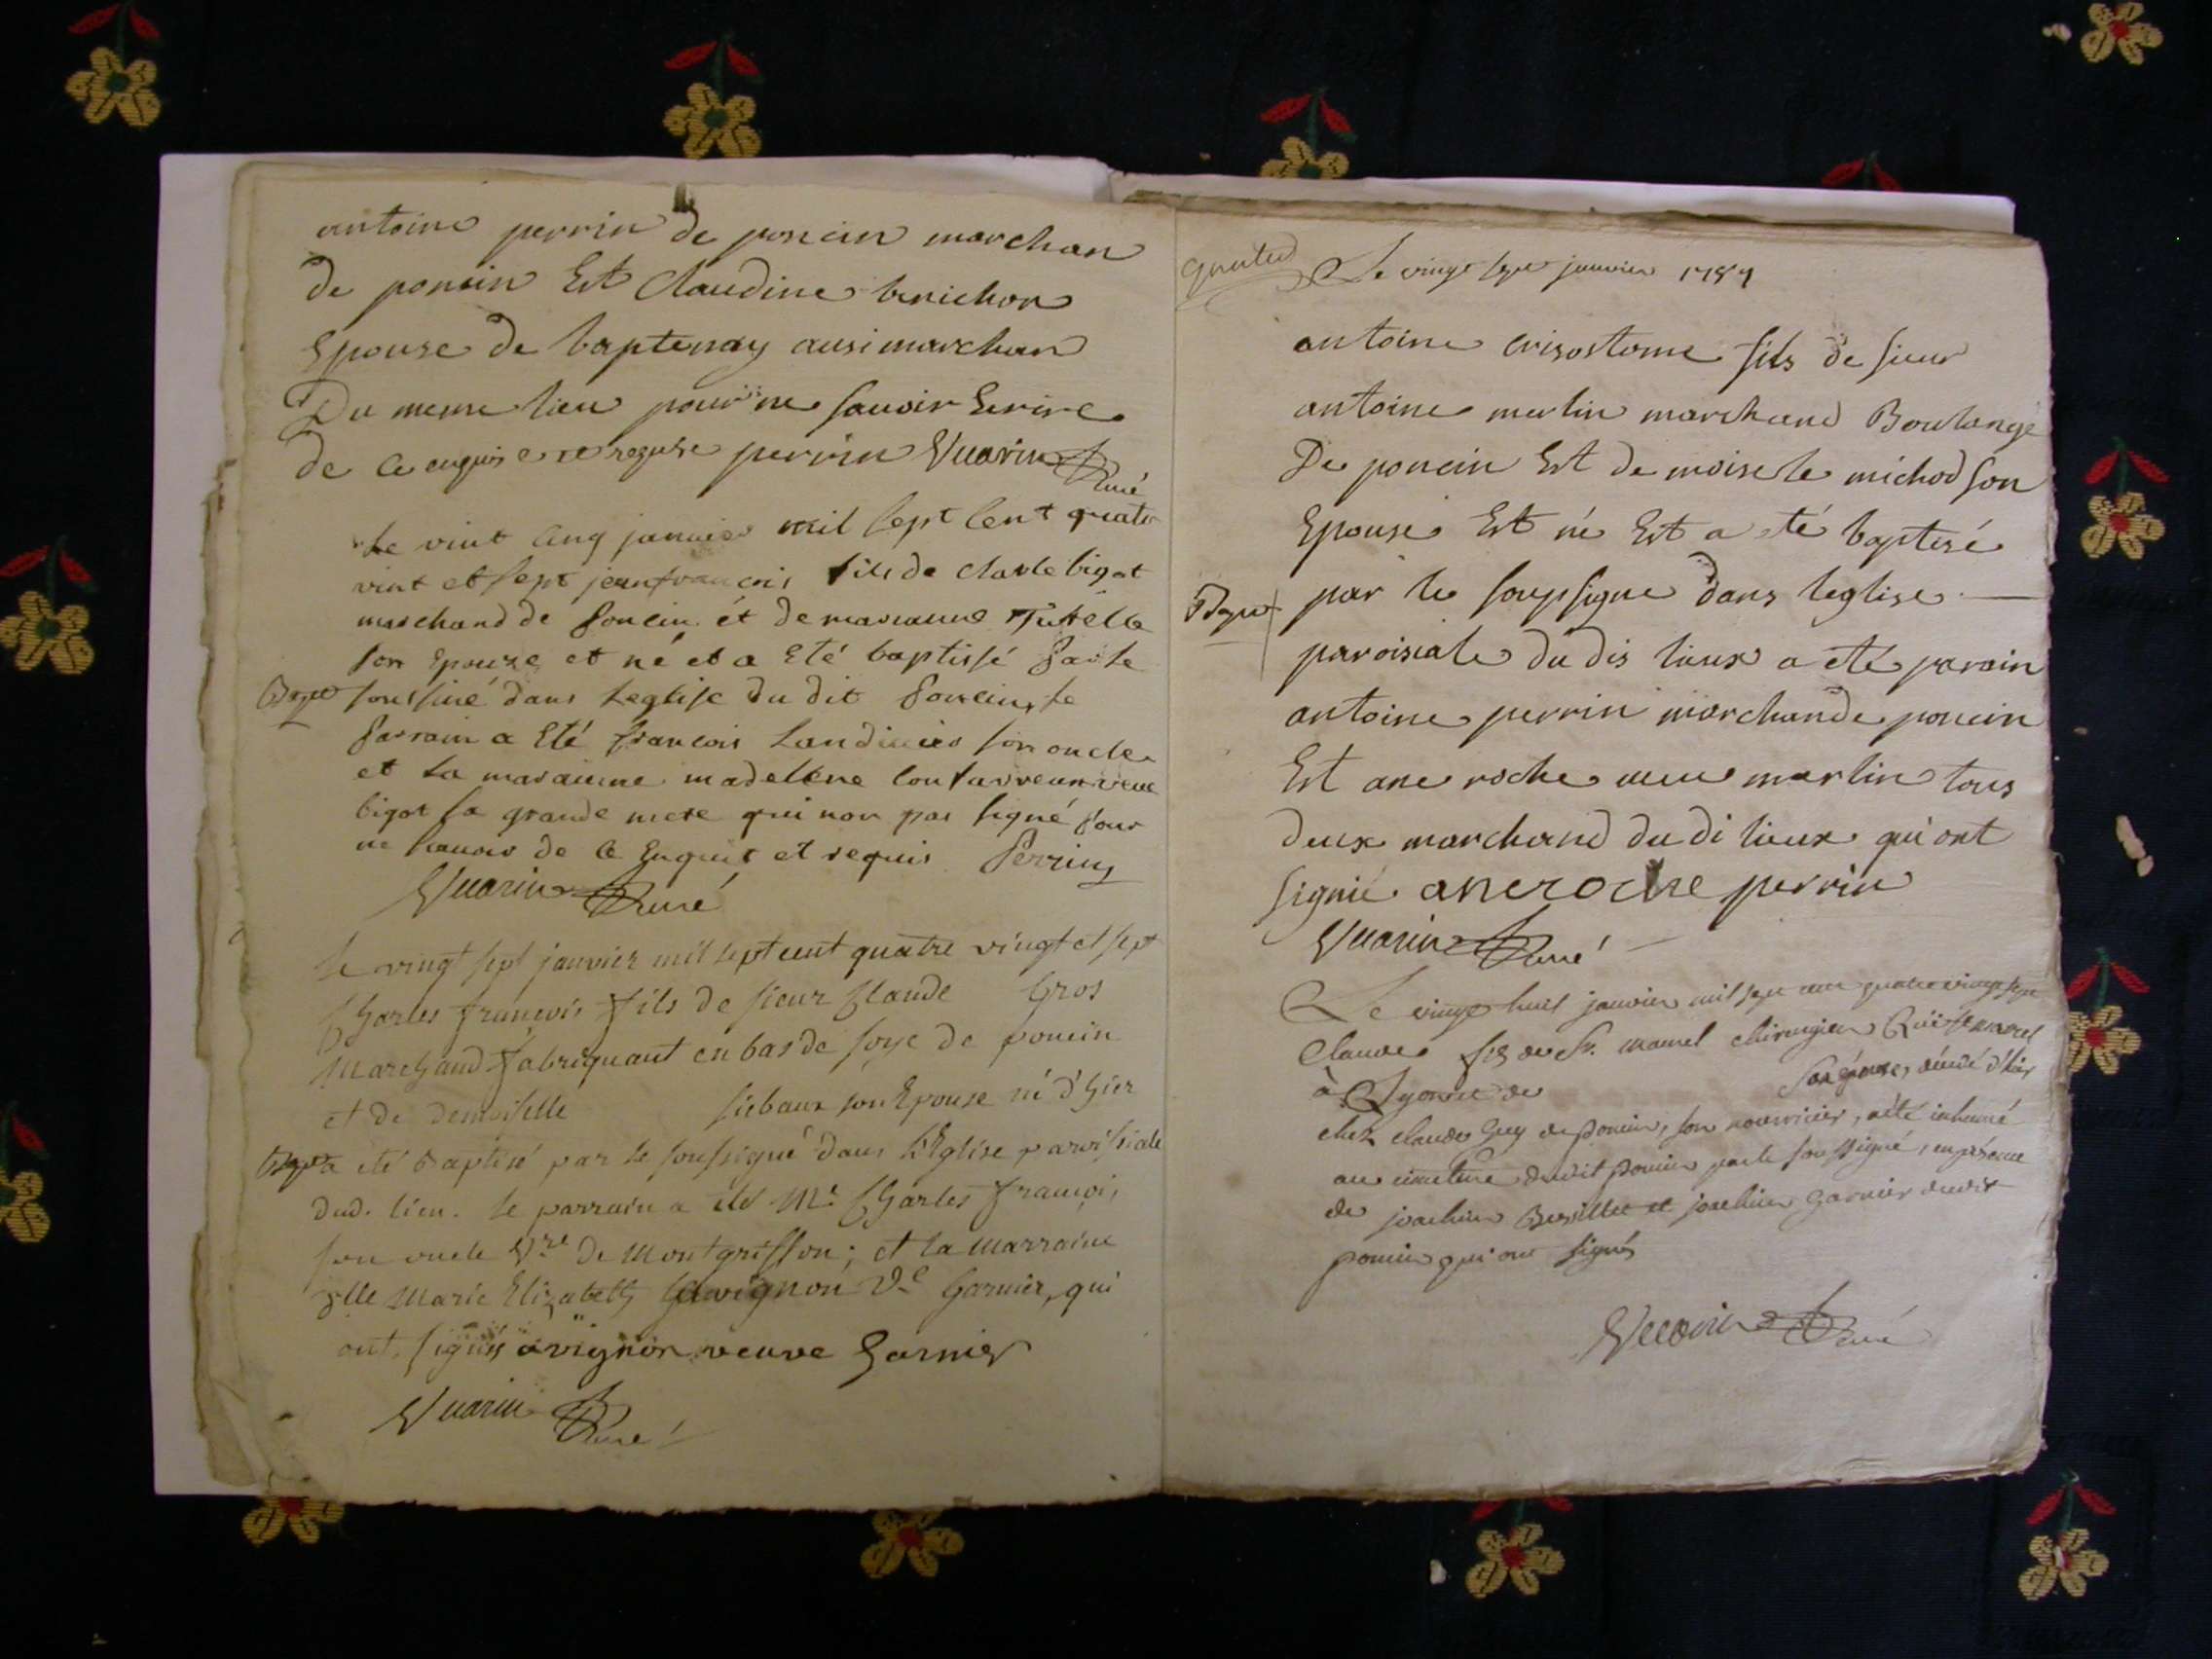 antoine perrin de poncin marchan
de poncin Est Claudine berichon
Epouse de baptenay ausi marchan
Du meme lieu pour ne savoir Ecrire
de ce enquis e re requise perrin Vuarin Curé
Le vint cinq janvier mil sept cent quatr
vint et sept jeanfrancois fils de charle bigot
marchand de poncin et de marianne
son Epouze et né et a Eté baptissé par le
Bapt soussiné dans Leglise du dit poncin, le
parrain a Eté francois Landinier son oncle
et La maraine madelene veuve
bigot sa grande mere qui non pas signé pour
ne savoir de ce Enquis et requis Perrin
Vuarin Curé
Le vingt sept janvier mil sept cent quatre vingt et sept
Charles françois fils de sieur Claude Gros
Marchand fabriquant en bas de soye de poncin
et de demoiselle siebaux son Epouse né d'hier
Bapt a été Baptisé par le soussigné dans L'Eglise paroissiale
dud. lieu. le parrain a été Mr. Charles françois
son oncle de Montgriffon; et la Marraine
dlle Marie Elizabeth avignon Ve Garnier, qui
ont signés avignon veuve Garnier
Vuarin Curé
Le vingt sept janvier 1787
antoine crisostome fils de sieur
antoine merlin marchand Boulangé
De poncin Est de moisele michod son
Epouse Est né Est a eté baptisé
Bapt par le soupsigne dans leglise
paroisiale du dis lieux a eté parain
antoine perrin marchande poncin
Est ane roche merlin tous
deux marchand du di lieux qui ont
signié ane roche perrin
Vuarin Curé
Le vingt huit janvier mil sept cent quatre vingt sept
Claude fils de Sr. mamel chirurgien
à Lyon et de son épouse, décédé d'hier
chez claude Guy de poncin, son nourricier, a été inhumé
au cimetiere dudit poncin par le soussigné, en présence
de joachim et joachim Garnier dudit
poncin qui ont signés
Vuarin Curé